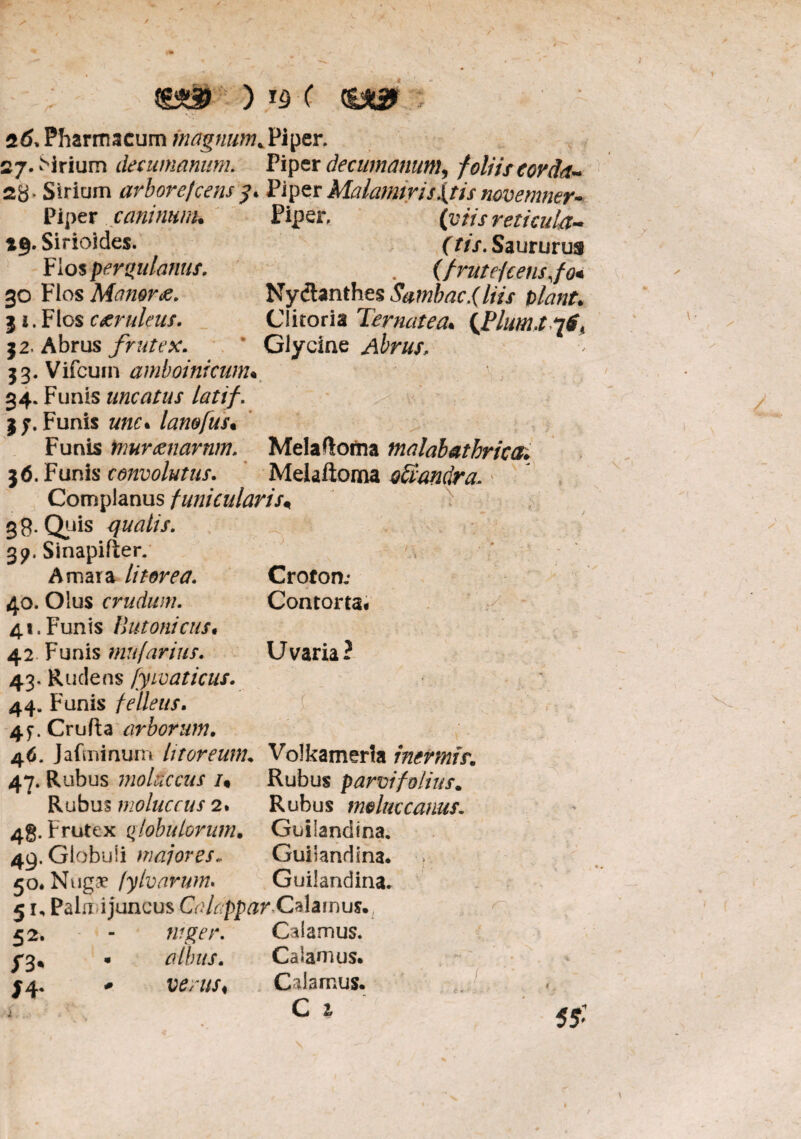 ) 19 (
26. Pharmacum magnum. Piper.
27. Sirium decumanum. Piper decumanum, foliis corda-
28. Sirium arborescens 3. Piper Malamiris.(tis novemner-
Piper caninum. Piper. (viis reticula-
29. Sirioides. (tis. Saururus
Flos pergulanus. (frutescens, fo-
30 Flos Manoræ. Nyctanthes Sambac.(liis plant.
31. Flos cæruleus. Clitoria Ternatea. (Plum.t.76.
32. Abrus frutex. Glycine Abrus.
33. Viscum amboinicum.
34. Funis uncatus latif.
35. Funis unc. lanosus.
Funis murænarnm. Melastoma malabathrica.
36. Funis convolutus. Melastoma octandra.
Complanus funicularis.
38. Quis qualis.
39. Sinapister.
Amara litorea. Croton.
40. Olus crudum. Contorta.
41. Funis Butonicus.
42 Funis musarius. Uvaria?
43. Rudens sylvaticus.
44. Funis felleus.
45. Crusta arborum.
46. Jasminum litoreum. Volkameria inermis.
47. Rubus moluccus 1. Rubus parvifolius.
Rubus moluccus 2. Rubus moluccanus.
48. Frutex globulorum. Guilandina.
49. Globuli majores. Guilandina.
50. Nugæ sylvarum. Guilandina.
51. Palmijuncus Calappar. Calamus.
52. - niger. Calamus.
53. - albus. Calamus.
54. - verus. Calamus.
C 2 55.